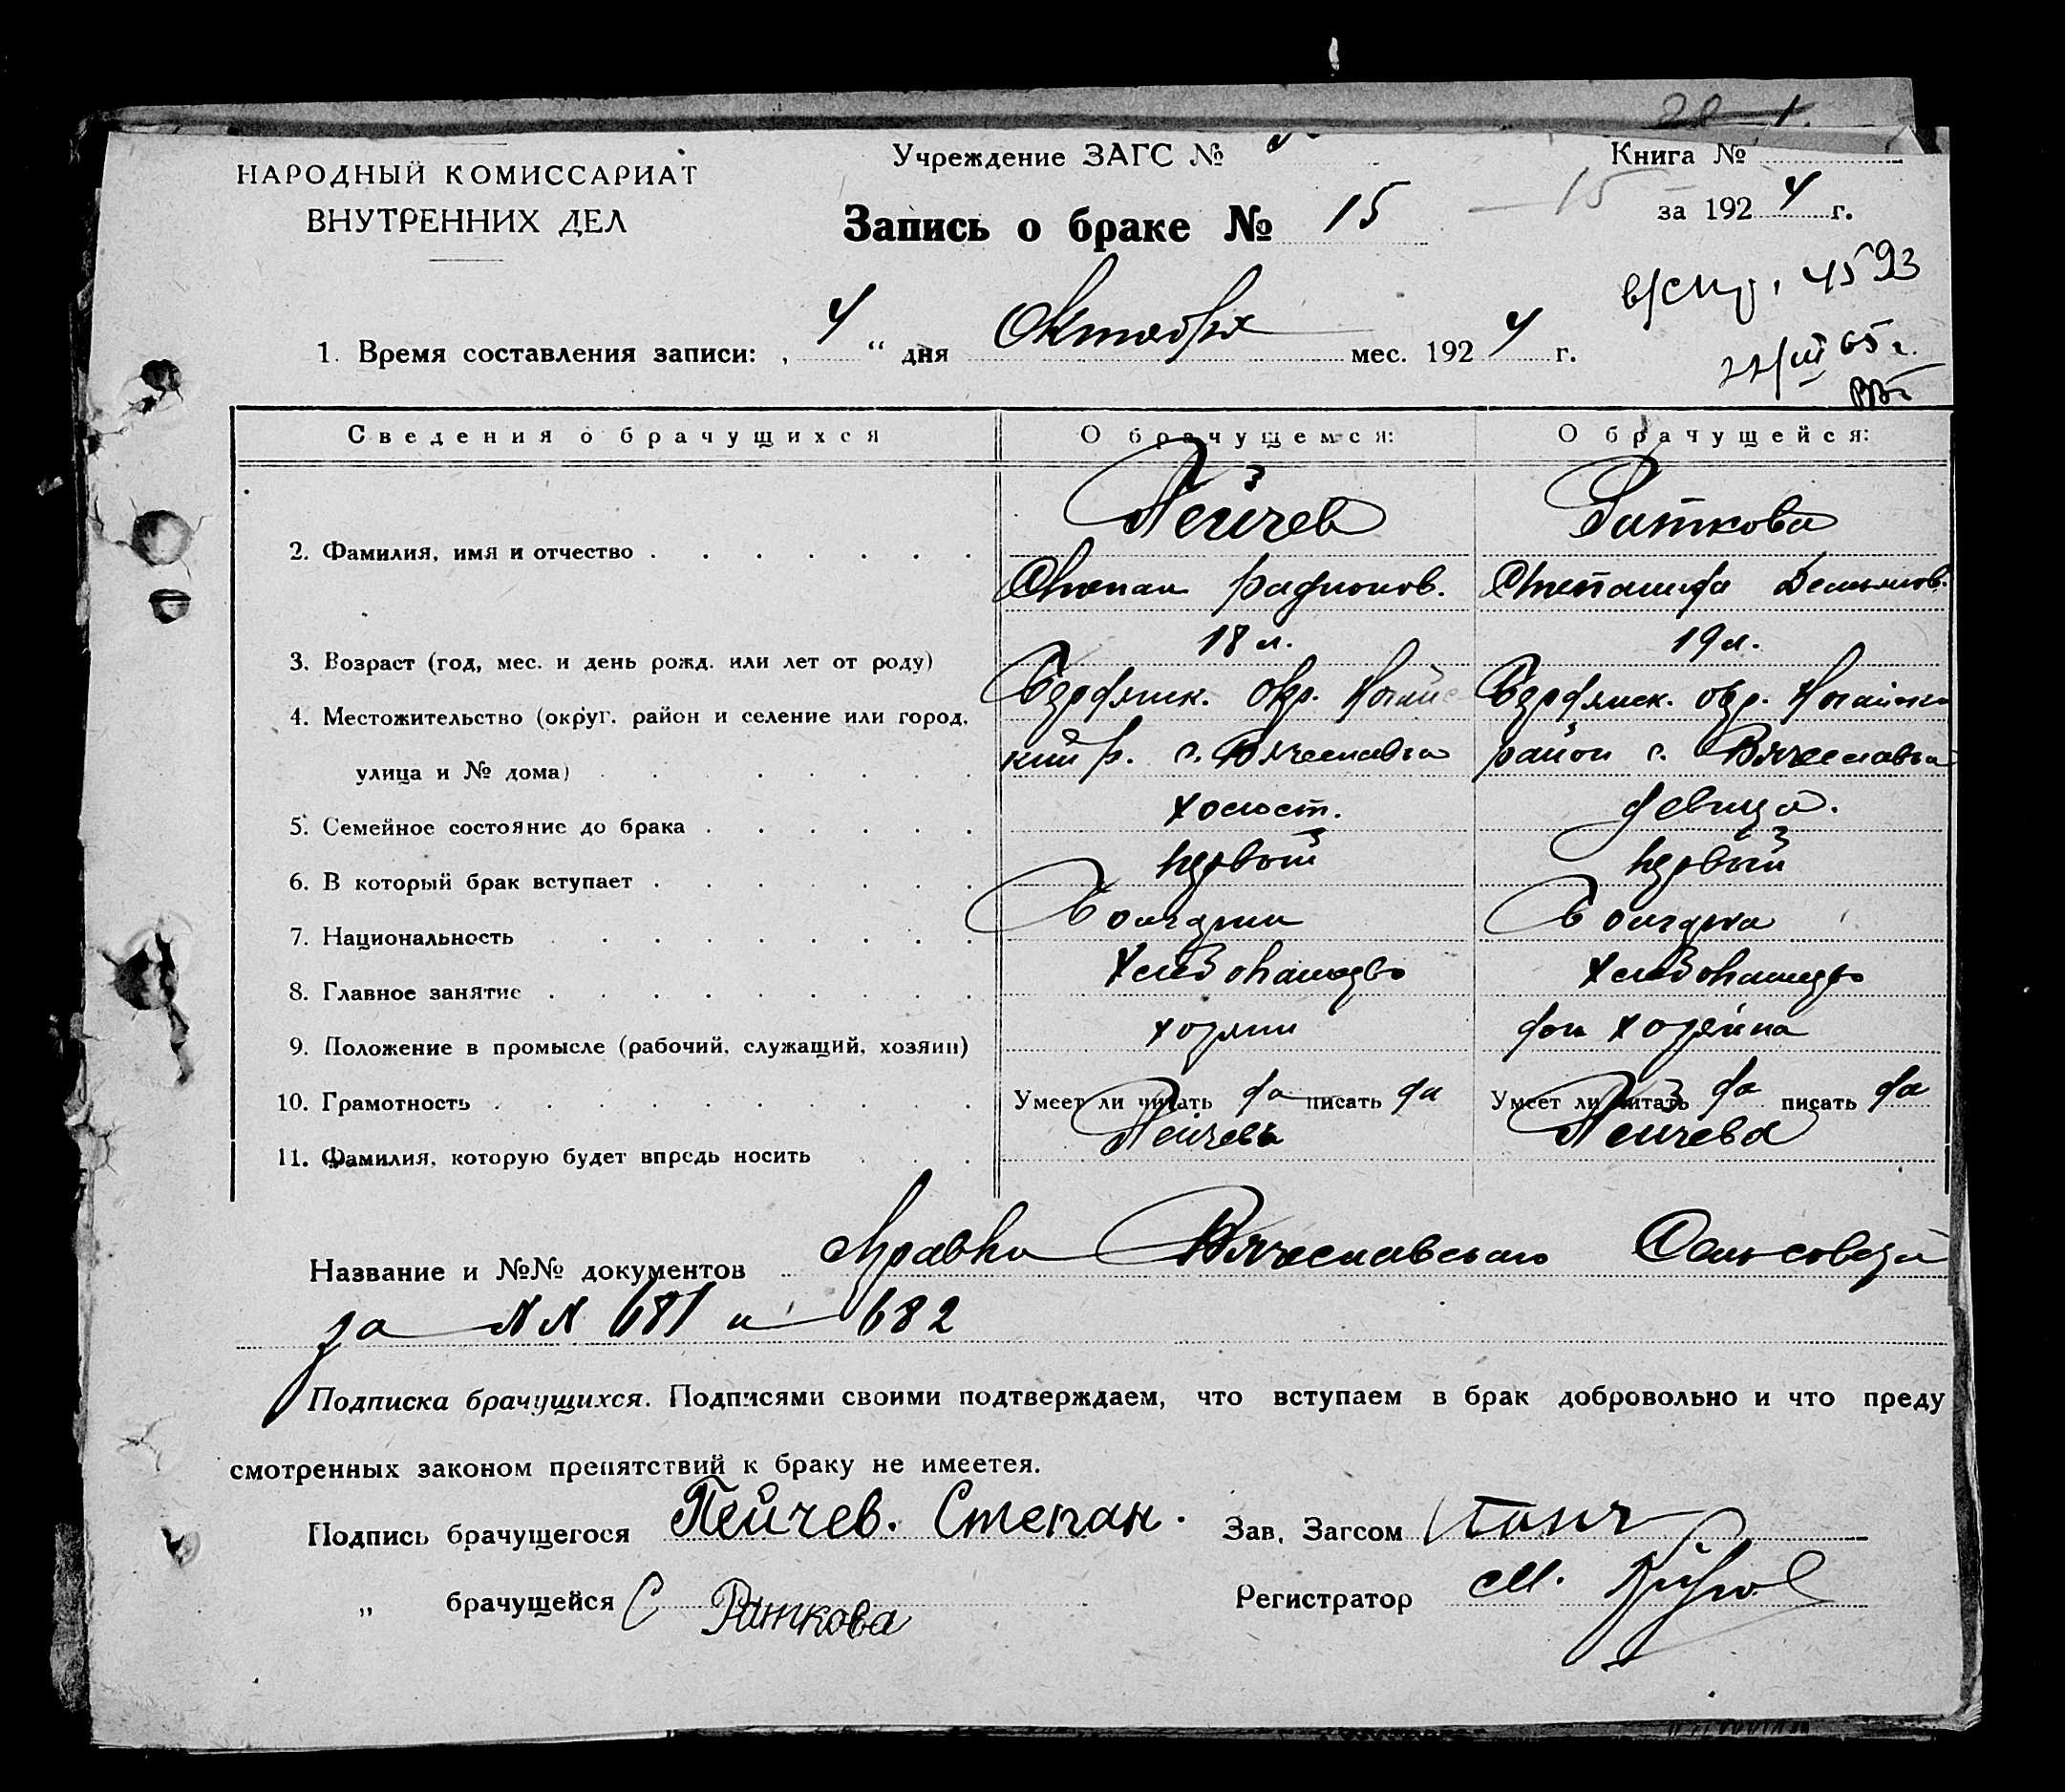 Учреждение ЗАГС №
Книга №
НАРОДНЫЙ КОМИССАРИАТ
ВНУТРЕННИХ ДЕЛ
Запись о браке № 15 — 15
за 1924 г.
4593
1. Время составления записи: „ 4 “ дня Октября мес. 1924 г.
65 г.
Сведения о брачущихся О брачущемся: О брачущейся:
Пейчев Раткова
2. Фамилия, имя и отчество
Степан Родионов. Степанида Демьянов.
18 л. 19 л.
3. Возраст (год, мес. и день рожд. или лет от роду)
Бердянск. окр. Ногайс Бердянск. окр. Ногайски
4. Местожительство (округ, район и селение или город,
кий р. с. Вячеславка район с. Вячеславка
улица и № дома)
холост. девица.
5. Семейное состояние до брака
первый первый
6. В который брак вступает
Болгарин Болгарка
7. Национальность
Хлебопашество Хлебопашество
8. Главное занятие
хозяин дом хозяйка
9. Положение в промысле (рабочий, служащий, хозяин)
10. Грамотность Умеет ли читать да писать да Умеет ли читать да писать да
Пейчевъ Пейчева
11. Фамилия, которую будет впредь носить
Название и №№ документов Справки Вячеславского Сельсовета
за №№ 681 и 682
Подписка брачущихся. Подписями своими подтверждаем, что вступаем в брак добровольно и что преду
смотренных законом препятствий к браку не имеется.
Подпись брачущегося Пейчев. Степан. Зав. Загсом
„ брачущейся С Раткова Регистратор М.